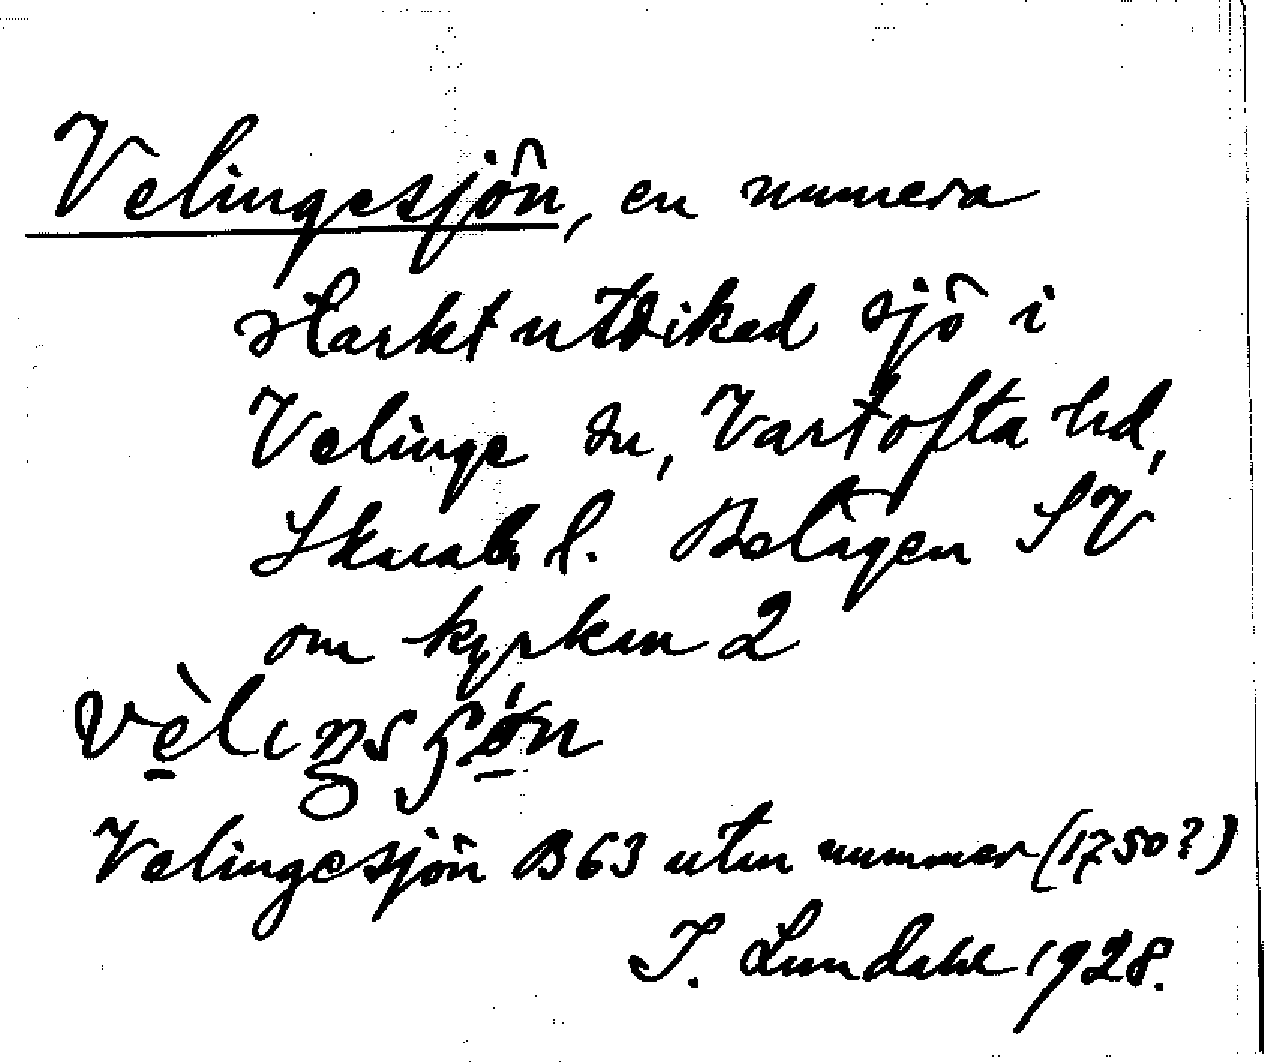 Velingesjön, en numera
starkt utdiked sjö i
Velinge sn, Vartofta hd,
Skarab. l. Belägen SV
om kyrkan 2
Velingesjön B63 utan nummer (1750?)
I. Lundahl 1928.